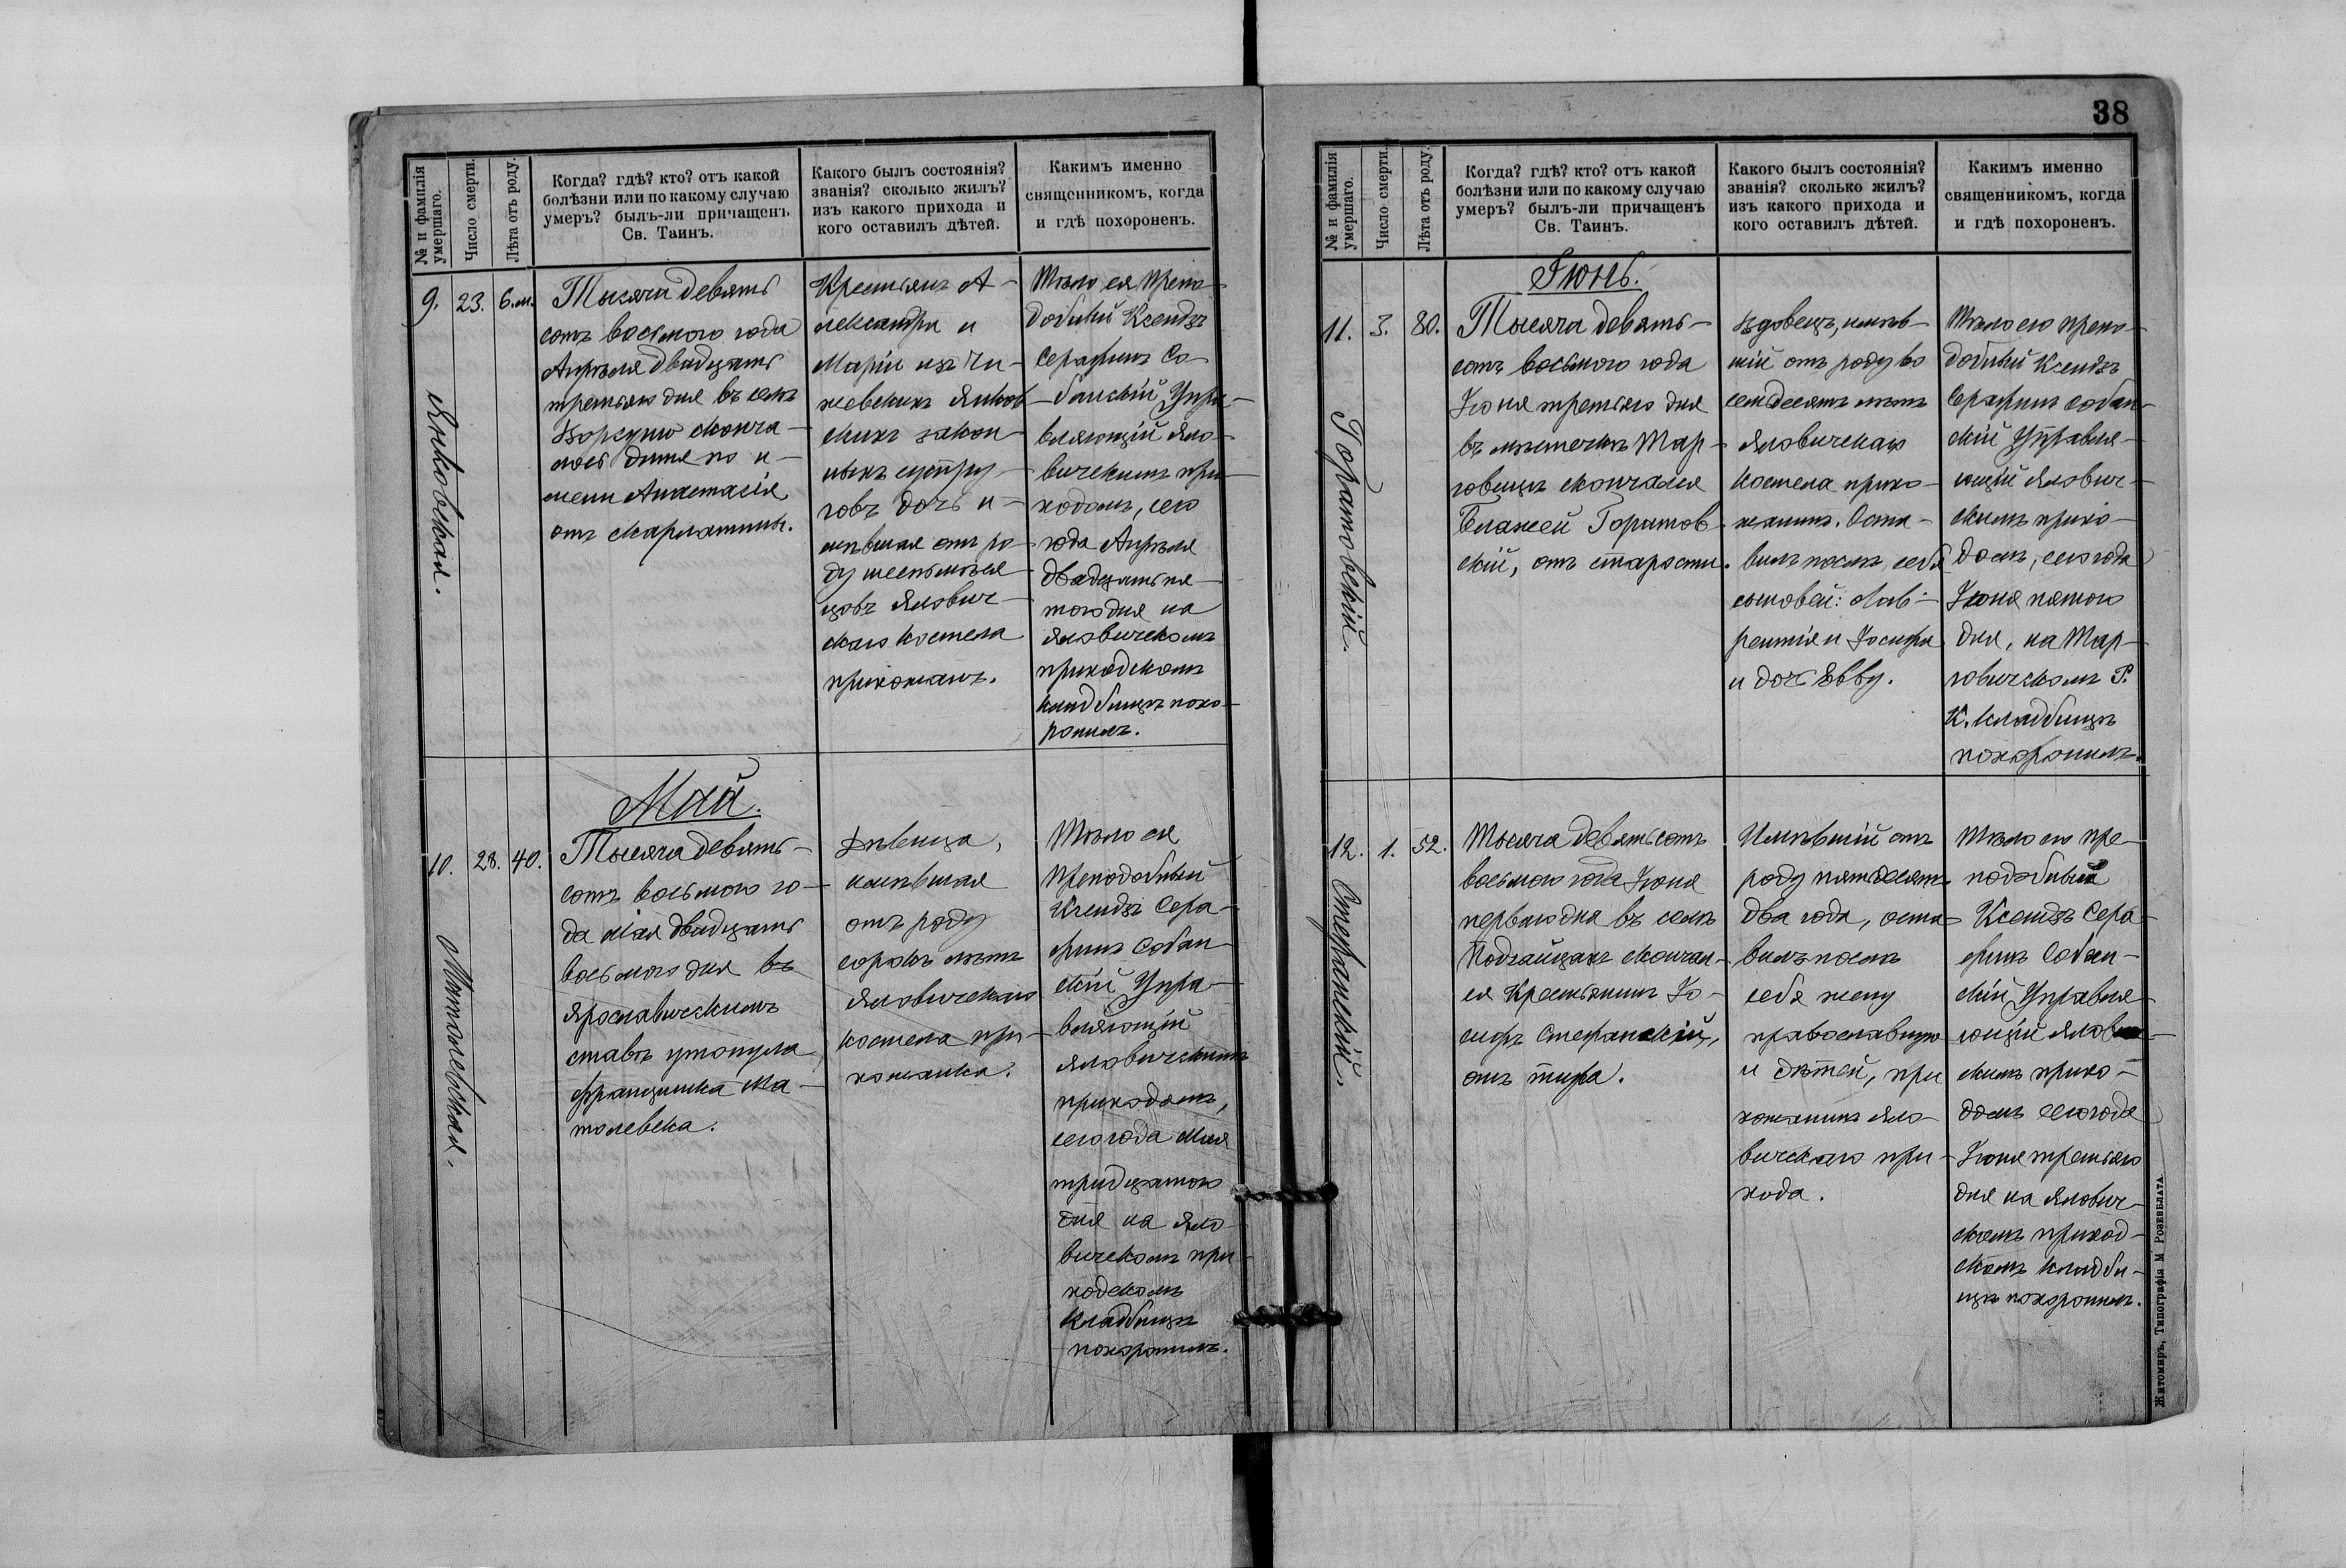 № и фамилія
умершаго.
Число смерти.
Лѣта отъ роду.
Когда? гдѣ? кто? отъ какой
болѣзни или по какому случаю
умеръ? былъ-ли причащенъ
Св. Таинъ.
Какого былъ состоянія?
званія? сколько жилъ?
изъ какого прихода и
кого оставилъ дѣтей.
Какимъ именно
священникомъ, когда
и гдѣ похороненъ.
9.
Янковская.
23.
6.м.
Тысяча девять
сотъ восьмого года
Апрѣля двадцать
третьяго дня въ селѣ
сконча-
лось дитя по и-
мени Анастасія
отъ скарлатины.
Крестьянъ А-
лександра и
Маріи изъ
Янков-
скихъ закон-
ныхъ супру-
говъ дочь и-
мѣвшая отъ ро-
ду шесть мѣся-
цовъ Ялович-
скаго костела
прихожанъ.
Тѣло ея препо-
добный Ксендзъ
Серафимъ Со-
банскій Упра-
вляющій Яло-
вичскимъ при-
ходомъ, сего
года Апрѣля
двадцать пя-
того дня на
Яловичскомъ
приходскомъ
кладбищѣ похо-
ронилъ.
Май.
10.
Матолевская.
28.
40.
Тысяча девять-
сотъ восьмого го-
да Мая двадцать
восьмого дня въ
Ярославичскимъ
ставѣ утонула
Францишка Ма-
толевска.
Дѣвица,
имѣвшая
отъ роду
сорокъ лѣтъ
Яловичскаго
костела при-
хожанка.
Тѣло ея
преподобный
Ксендзъ Сера-
фимъ Собан-
скій Упра-
вляющій
Яловичскимъ
приходомъ,
сего года Мая
тридцатого
дня на Яло-
вичскомъ при-
ходскомъ
кладбищѣ
похоронилъ.
38
№ и фамилія
умершаго.
Число смерти.
Лѣта отъ роду.
Когда? гдѣ? кто? отъ какой
болѣзни или по какому случаю
умеръ? былъ-ли причащенъ
Св. Таинъ.
Какого былъ состоянія?
званія? сколько жилъ?
изъ какого прихода и
кого оставилъ дѣтей.
Какимъ именно
священникомъ, когда
и гдѣ похороненъ.
Іюнь.
11.
Горатовскій.
3.
80.
Тысяча девять-
сотъ восьмого года
Іюня третьяго дня
въ мѣстечкѣ Тар-
говицѣ скончался
Блажей Горатов-
скій, отъ старости.
Вдовецъ, имѣв-
шій отъ роду во
семдесятъ лѣтъ
Яловичскаго
костела прихо-
жанинъ. Оста-
вилъ послѣ себя
сыновей: Лав-
рентія и Іосифа
и дочь Евву.
Тѣло его препо-
добный Ксендзъ
Серафимъ Собан-
скій Управля-
ющій Ялович-
скимъ прихо-
домъ, сего года
Іюня пятого
дня, на Тар-
говичскомъ Р.
К. кладбищѣ
похоронилъ.
12.
Стефанскій.
1.
52.
Тысяча девятьсотъ
восьмого года Іюня
перваго дня въ селѣ
Подгайцахъ скончал-
ся Крестьянинъ Іо-
сифъ Стефанскій,
отъ тифа.
Имѣвшій отъ
роду пятьдесятъ
два года, оста-
вилъ послѣ
себя жену
православную
и дѣтей, при
хожанинъ Яло
вичскаго при-
хода.
Тѣло его пре-
подобный
Ксендзъ Сера-
фимъ Собан-
скій Управля-
ющій
скимъ прихо-
домъ сего года
Іюня третьяго
дня на Ялович-
скомъ приход-
скомъ кладби-
щѣ похоронилъ.
Житомиръ, Типографія М Розенблата